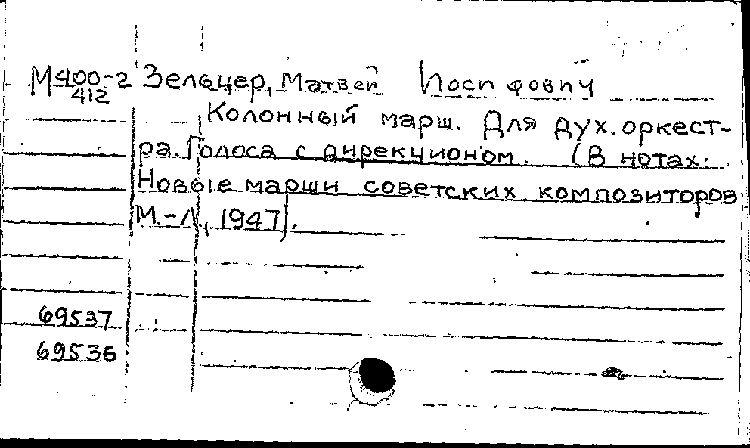 М400-2 Зельцер, Матвей Иосифович
412
Колонный марш. Для дух. оркест-
ра. Голоса с дирекционом. (В нотах:
Новые марши советских композиторов
М.-Л., 1947).
69537
69536